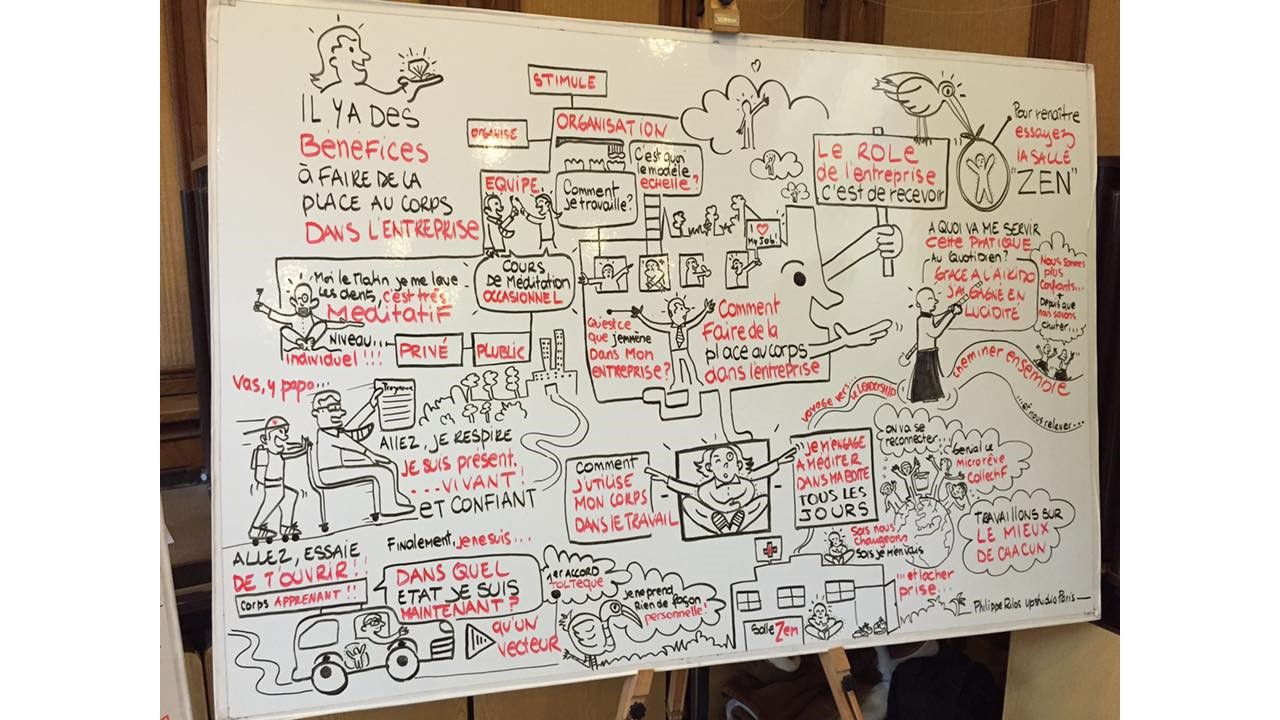 IL Y A DES
Bénéfices
à FAIRE DE LA
PLACE AU CORPS
DANS L'ENTREPRISE
STIMULE
ORGANISE
ORGANISATION
C'est quoi
le modèle
echelle?
Comment
je travaille?
EQUIPE
COURS
De Méditation
OCCASIONNEL
Moi le Matin je me lave
Les dents, c'est très
MéDITATIF
NIVEAU...
individuel !!!
PRIVÉ
PUBLIC
I ♥
My Job!
LE ROLE
de l'entreprise
c'est de recevoir
Pour renaître
essayez
la SALLE
"ZEN"
Qu'est ce
que j'emmène
DANS MON
ENTREPRISE?
Comment
Faire de la
place au corps
dans l'entreprise
A QUOI VA ME SERVIR
Cette PRATIQUE
AU QUOTIDIEN?
GRACE A L'AIKIDO
J'AI GAGNE EN
LUCIDITÉ
Nous sommes
plus
Confiants...
+
Depuis que
nous savons
chuter...
cheminer ensemble
...et nous relever...
voyage vers... le LEADERSHIP
Vas, y papa...
ALLEZ, JE RESPIRE
Je suis présent.
...VIVANT!
et CONFIANT
COMMENT
J'UTILISE
MON CORPS
DANS le TRAVAIL
Je M'ENGAGE
A MéDITER
DANS MA BOITE
TOUS LES
JOURS
on va se
reconnecter...
Genial ce
microrêve
collectif
TRAVAILLONS SUR
LE MIEUX
DE CHACUN
Sois nous
changeons
Sois je m'en vais
...et lacher
prise...
ALLEZ, ESSAIE
DE T'OUVRIR!!
Corps APPRENANT !!
Finalement, je ne suis...
DANS QUEL
ETAT JE SUIS
MAINTENANT?
qu'un
vecteur
1er ACCORD
TOLTEQUE
Je ne prend
Rien de façon
personnelle!
Salle Zen